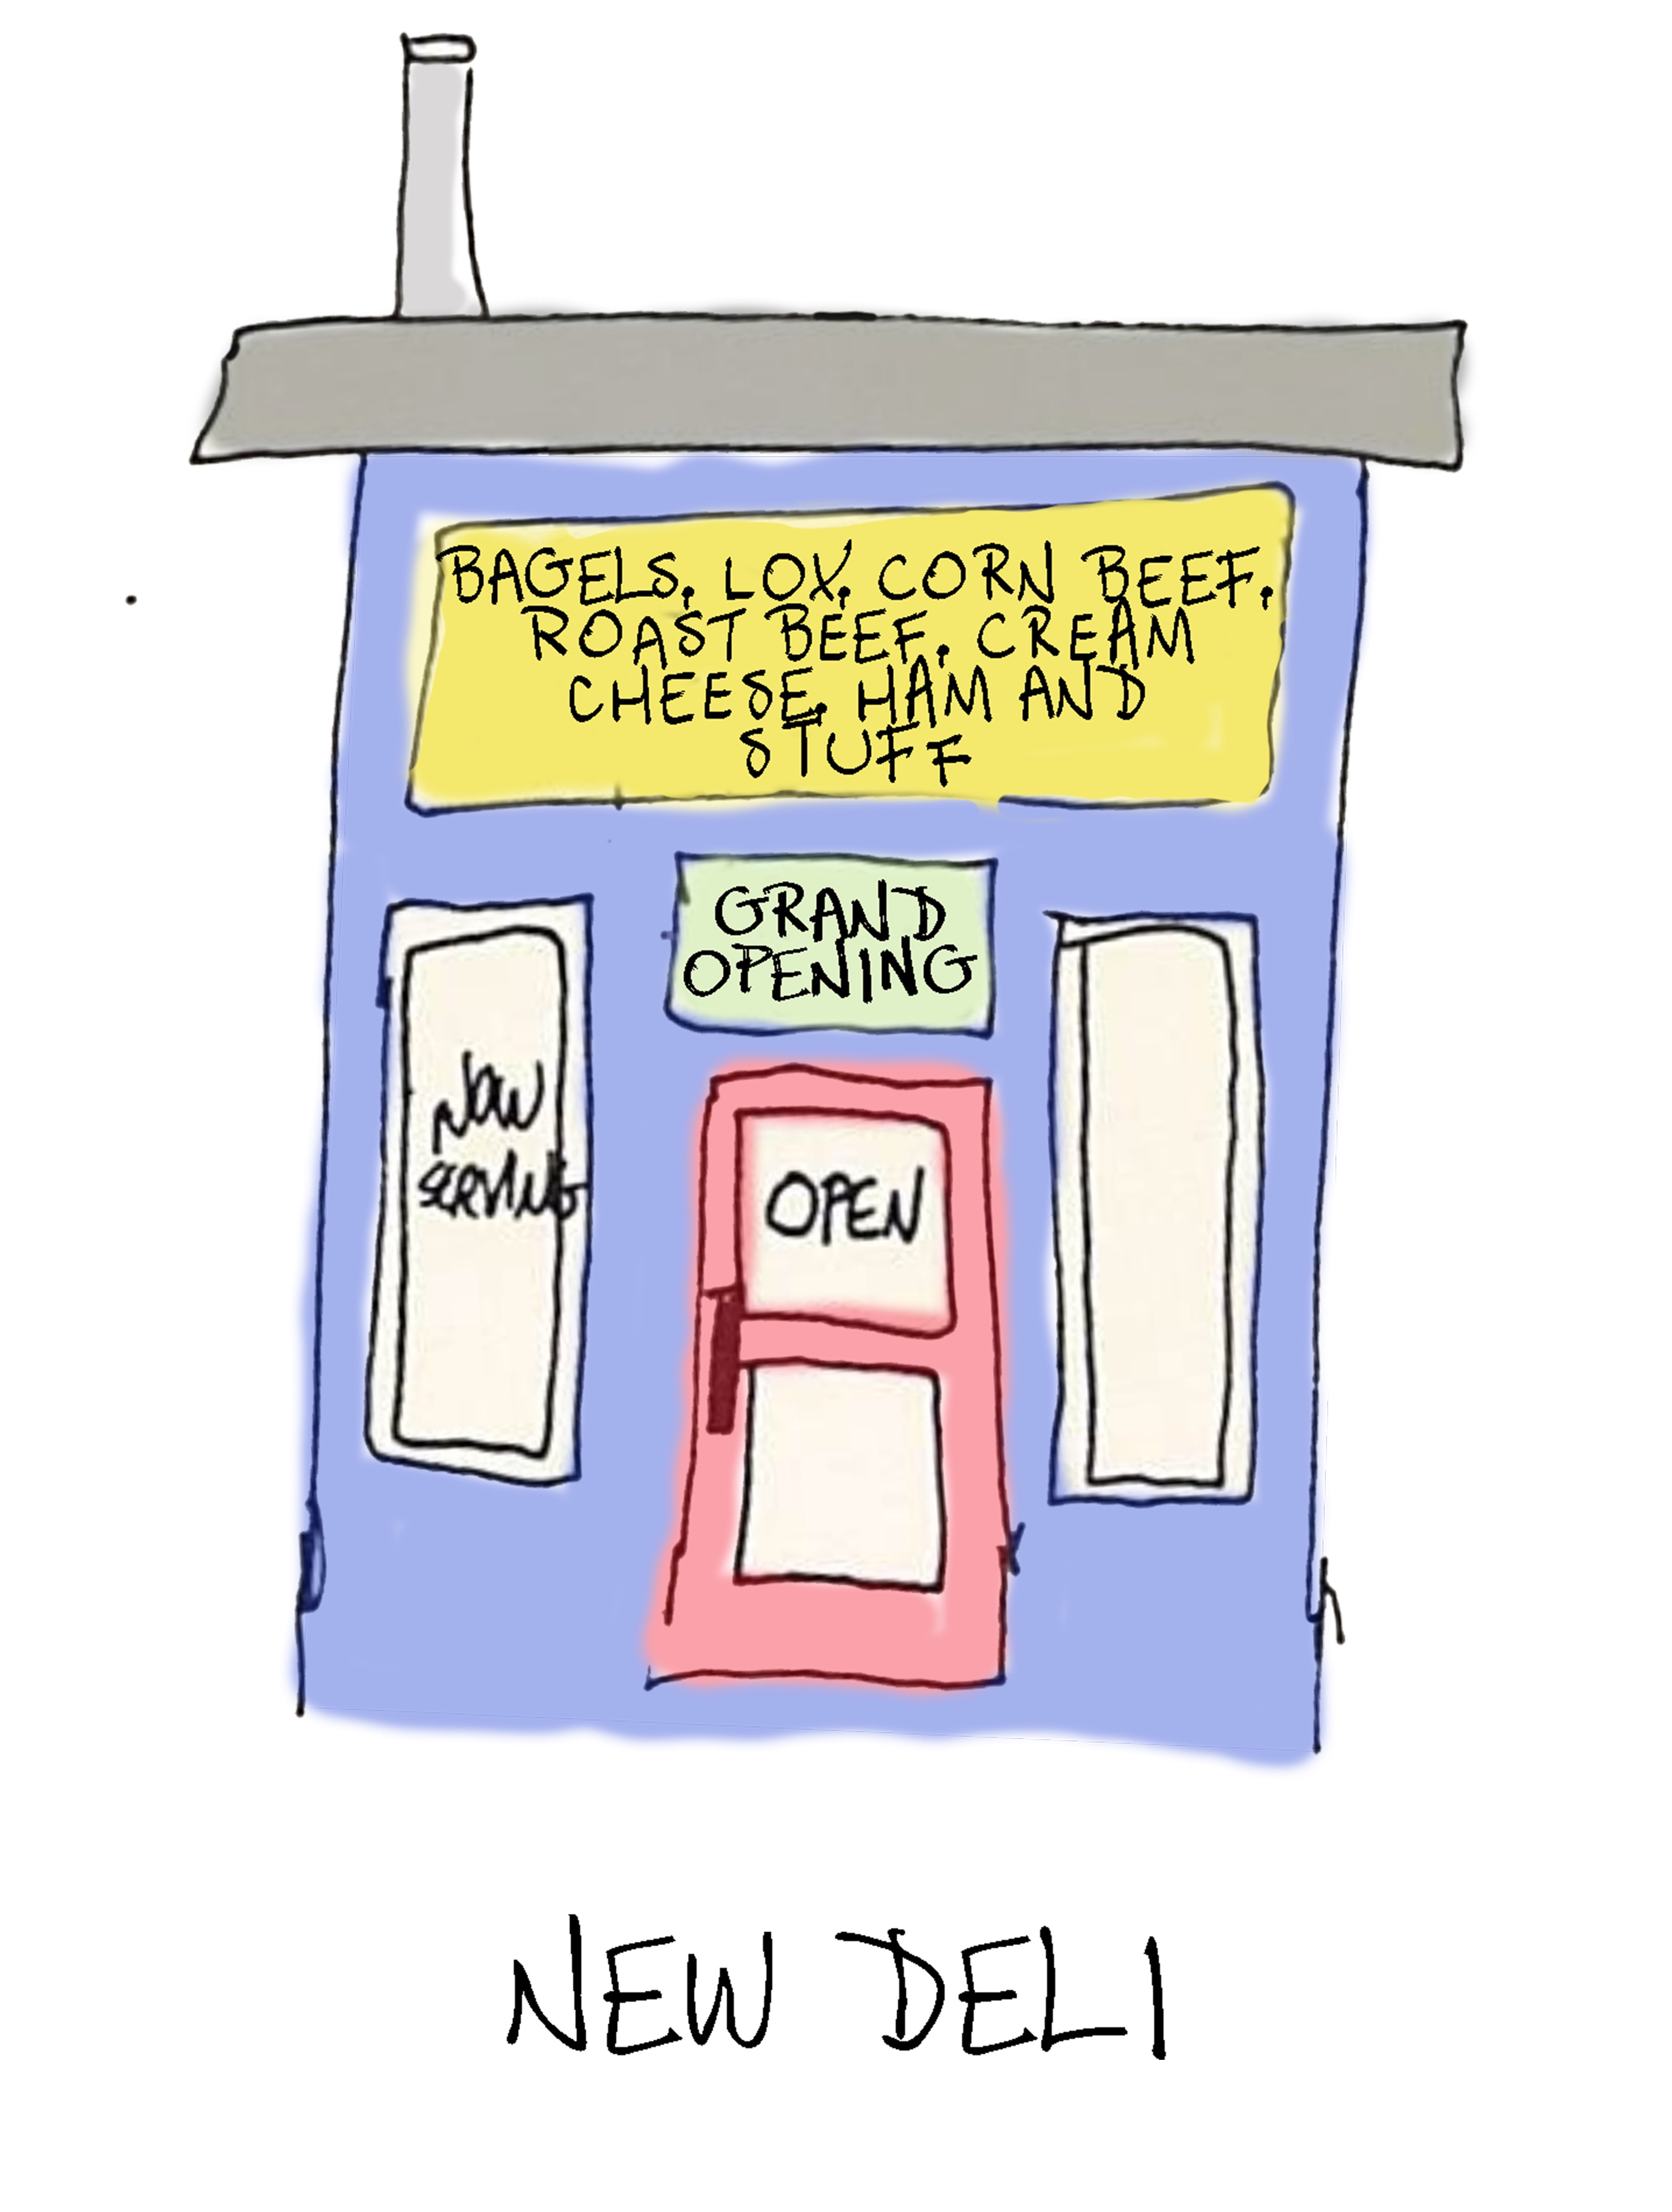 BAGELS, LOX, CORN BEEF,
ROAST BEEF, CREAM
CHEESE, HAM AND
STUFF
GRAND
OPENING
NOW
SERVING
OPEN
NEW DELI